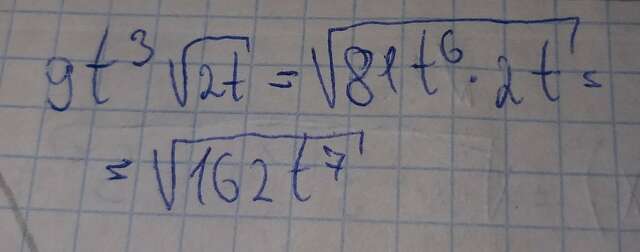 9t³ √2t = √81t⁶ · 2t =
= √162t⁷